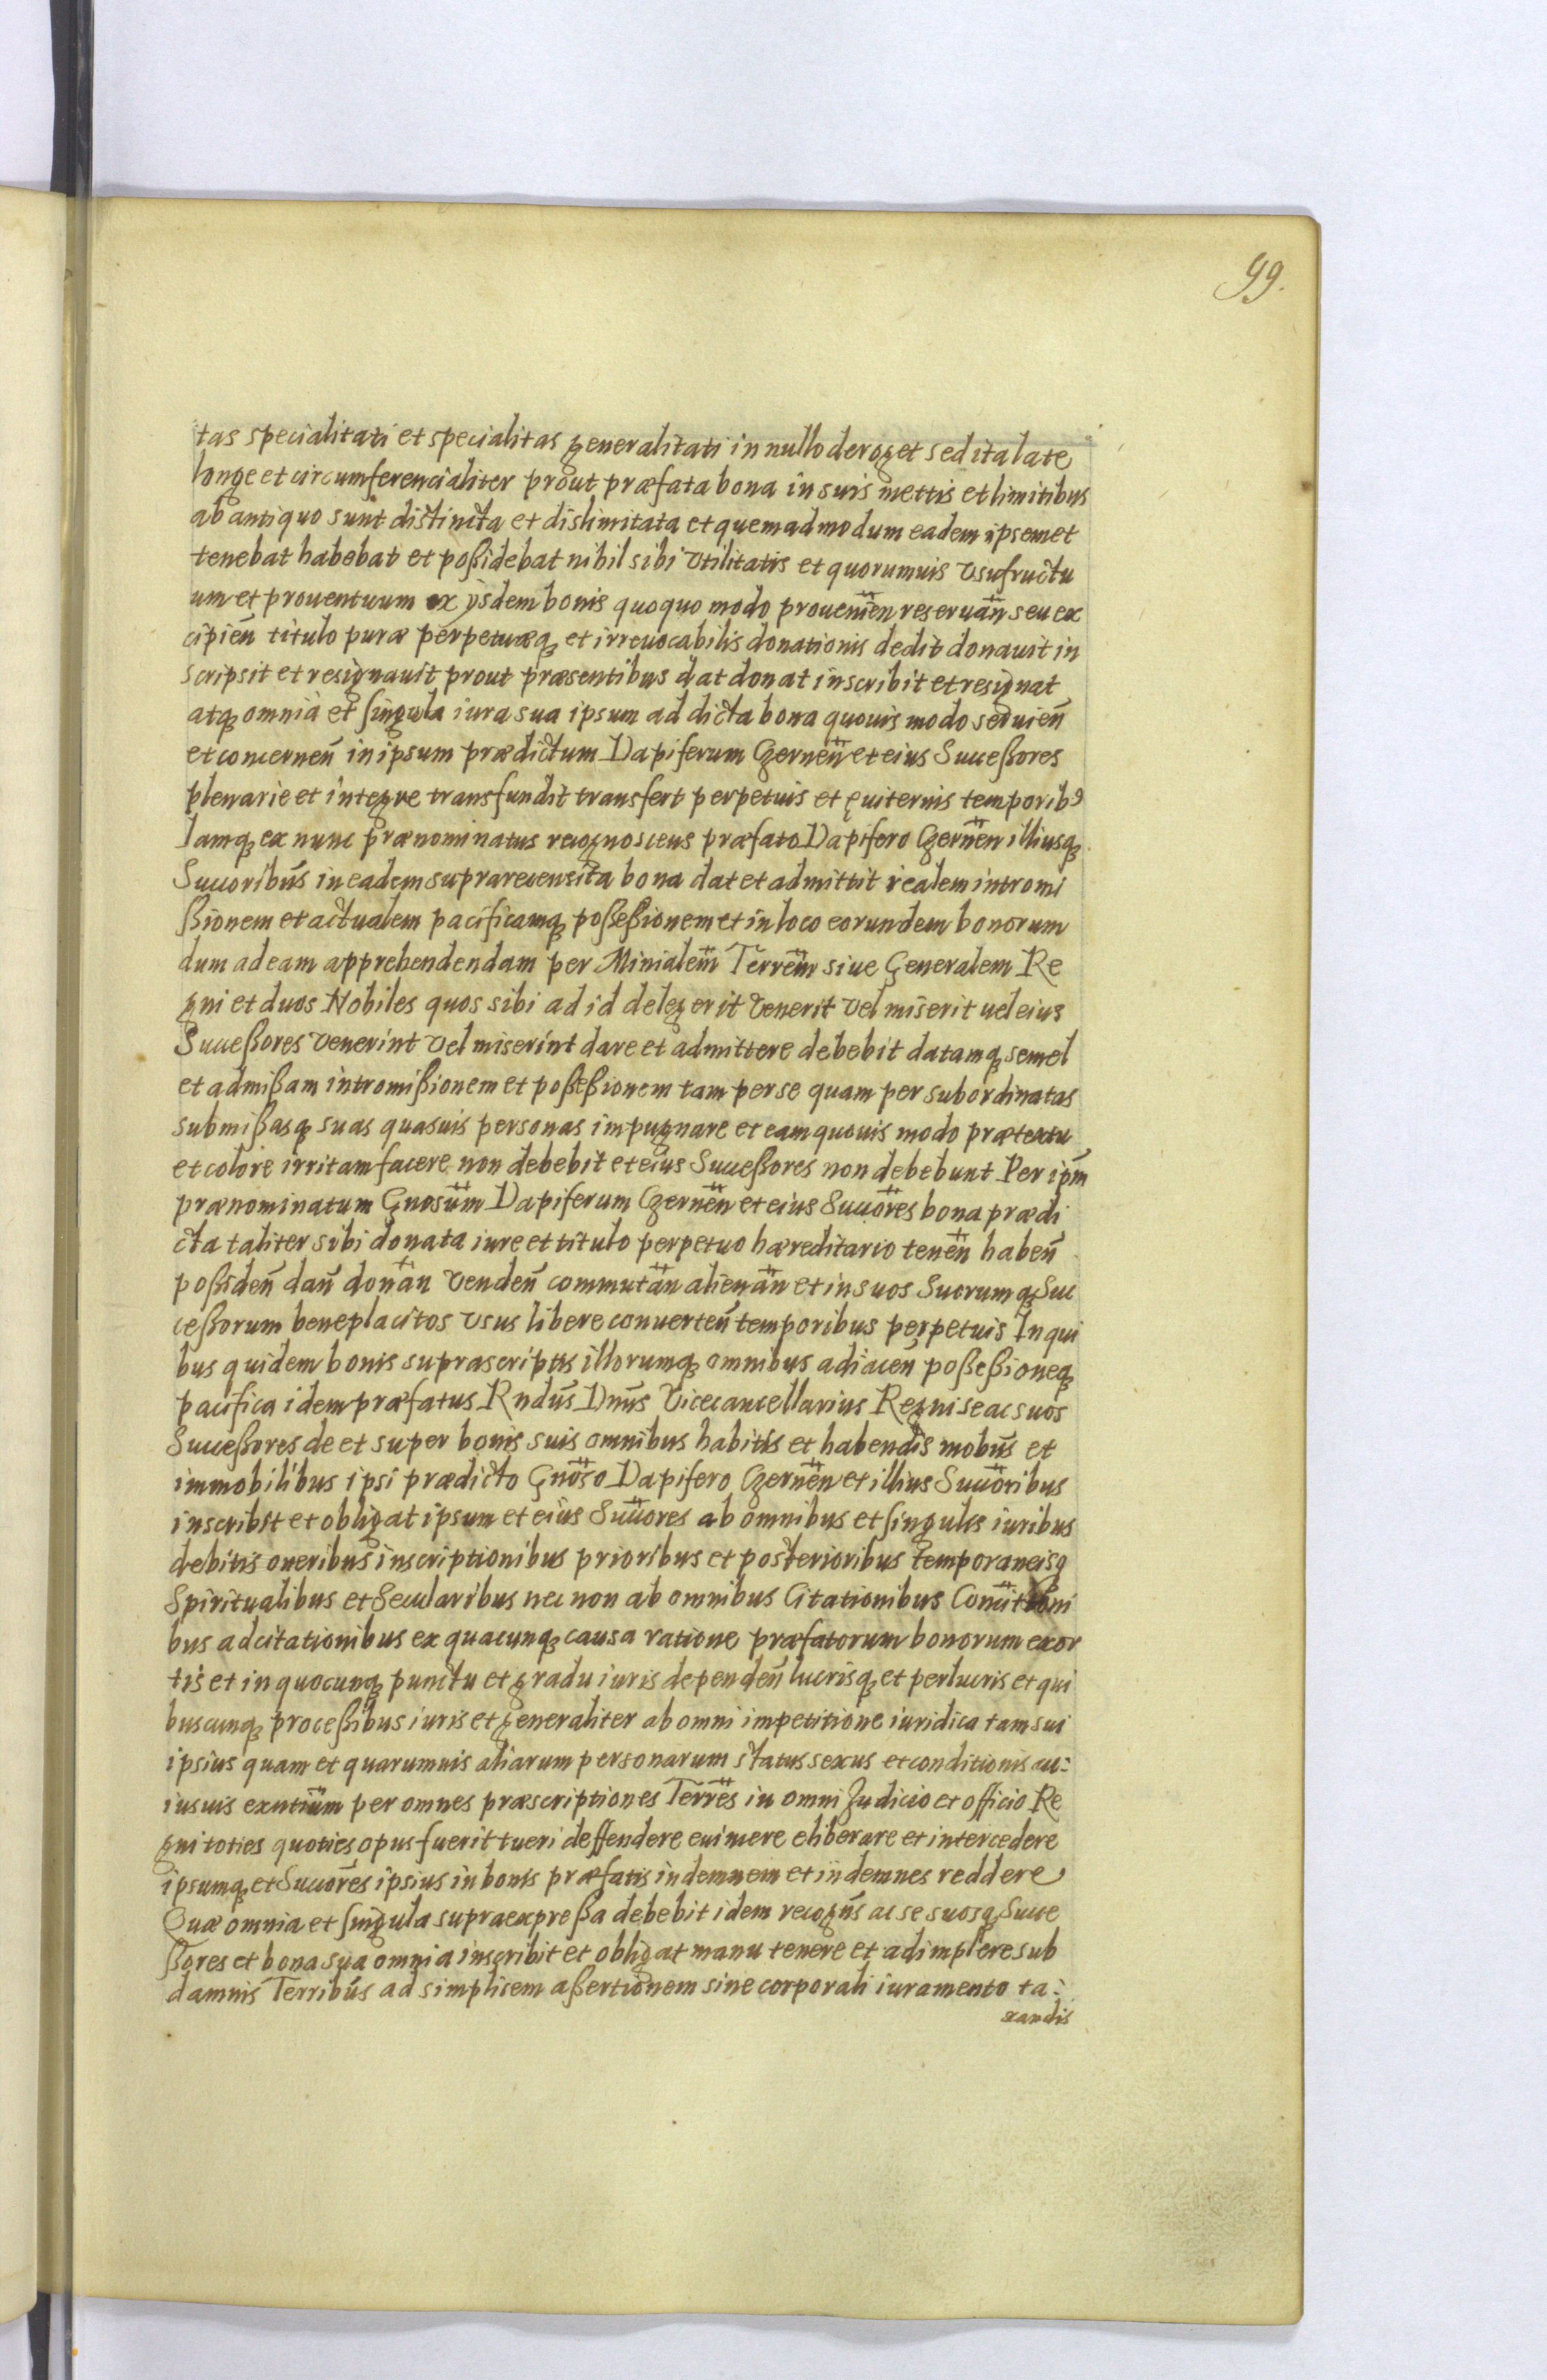 99.
tas specialitati et specialitas generalitati in nullo deroget sed ita late
longe et circumferencialiter prout præfata bona in suis mettis et limitibus
ab antiquo sunt distincta et dislimitata et quemadmodum eadem ipsemet
tenebat habebat et poßidebat nihil sibi vtilitatis et quorumuis vsufructu
um et prouentuum ex ÿsdem bonis quoquo modo prouenien̄ reseruan̄ seu ex
cipien̄ titulo puræ perpetuæq₃ et irreuocabilis donationis dedit donauit in
scripsit et resignauit prout præsentibus dat donat inscribit et resignat
atq₃ omnia et singula iura sua ipsum ad dicta bona quouis modo seruien̄
et concernen̄ in ipsum prædictum Dapiferum Czernen̄ et eius Succeßores
plenarie et integre transfundit transfert perpetuis et ęuiternis temporibꝰ
Iamq₃ ex nunc prænominatus recognoscens præfato Dapifero Czernen̄ illiusq₃
Succoribus̄ in eadem suprarecensita bona dat et admittit realem intromi
ßionem et actualem pacificamq₃ poßeßionem et in loco eorundem bonorum
dum ad eam apprehendendam per Minialem̄ Terrem̄ siue Generalem Re
gni et duos Nobiles quos sibi ad id delegerit venerit vel miserit uel eius
Succeßores venerint vel miserint dare et admittere debebit datamq₃ semel
et admißam intromißionem et poßeßionem tam per se quam per subordinatas
submißasq₃ suas quasuis personas impugnare et eam quouis modo prætextu
et colore irritam facere non debebit et eius Succeßores non debebunt Per ipm̄
prænominatum Gnosum̄ Dapiferum Czernen̄ et eius Succores̄ bona prædi
cta taliter sibi donata iure et titulo perpetuo hæreditario tenen̄ haben̄
poßiden̄ dan̄ donan̄ venden̄ commutan̄ alienan̄ et in suos Suorumq₃ Suc
ceßorum beneplacitos vsus libere conuerten̄ temporibus perpetuis In qui
bus quidem bonis suprascriptis illorumq₃ omnibus adiacen̄ poßeßioneq₃
pacifica idem præfatus Rndus̄ Dnus̄ Vicecancellarius Regni se ac suos
Succeßores de et super bonis suis omnibus habitis et habendis mobus̄ et
immobilibus ipsi prædicto Gnos̄o Dapifero Czernen̄ et illius Succoribus
inscribit et obligat ipsum et eius Succores ab omnibus et singulis iuribus
debitis oneribus inscriptionibus prioribus et posterioribus temporaneisq₃
Spiritualibus et Secularibus nec non ab omnibus Citationibus
bus adcitationibus ex quacunq₃ causa ratione præfatorum bonorum exor
tis et in quocunq₃ punctu et gradu iuris dependen̄ lucrisq₃ et perlucris et qui
buscunq₃ proceßibus iuris et generaliter ab omni impetitione iuridica tam sui
ipsius quam et quarumuis aliarum personarum status sexus et conditionis cu:
iusuis exutium̄ per omnes præscriptiones Terres̄ in omni Judicio et officio Re
gni toties quoties opus fuerit tueri deffendere euimere eliberare et intercedere
ipsumq₃ et Succores̄ ipsius in bonis præfatis indemnem et indemnes reddere
Quæ omnia et singula supraexpreßa debebit idem recogns̄ ac se suosq₃ Succe
ßores et bona sua omnia inscribit et obligat manu tenere et adimplere sub
damnis Terribus̄ ad simplicem aßertionem sine corporali iuramento ta:
xandis